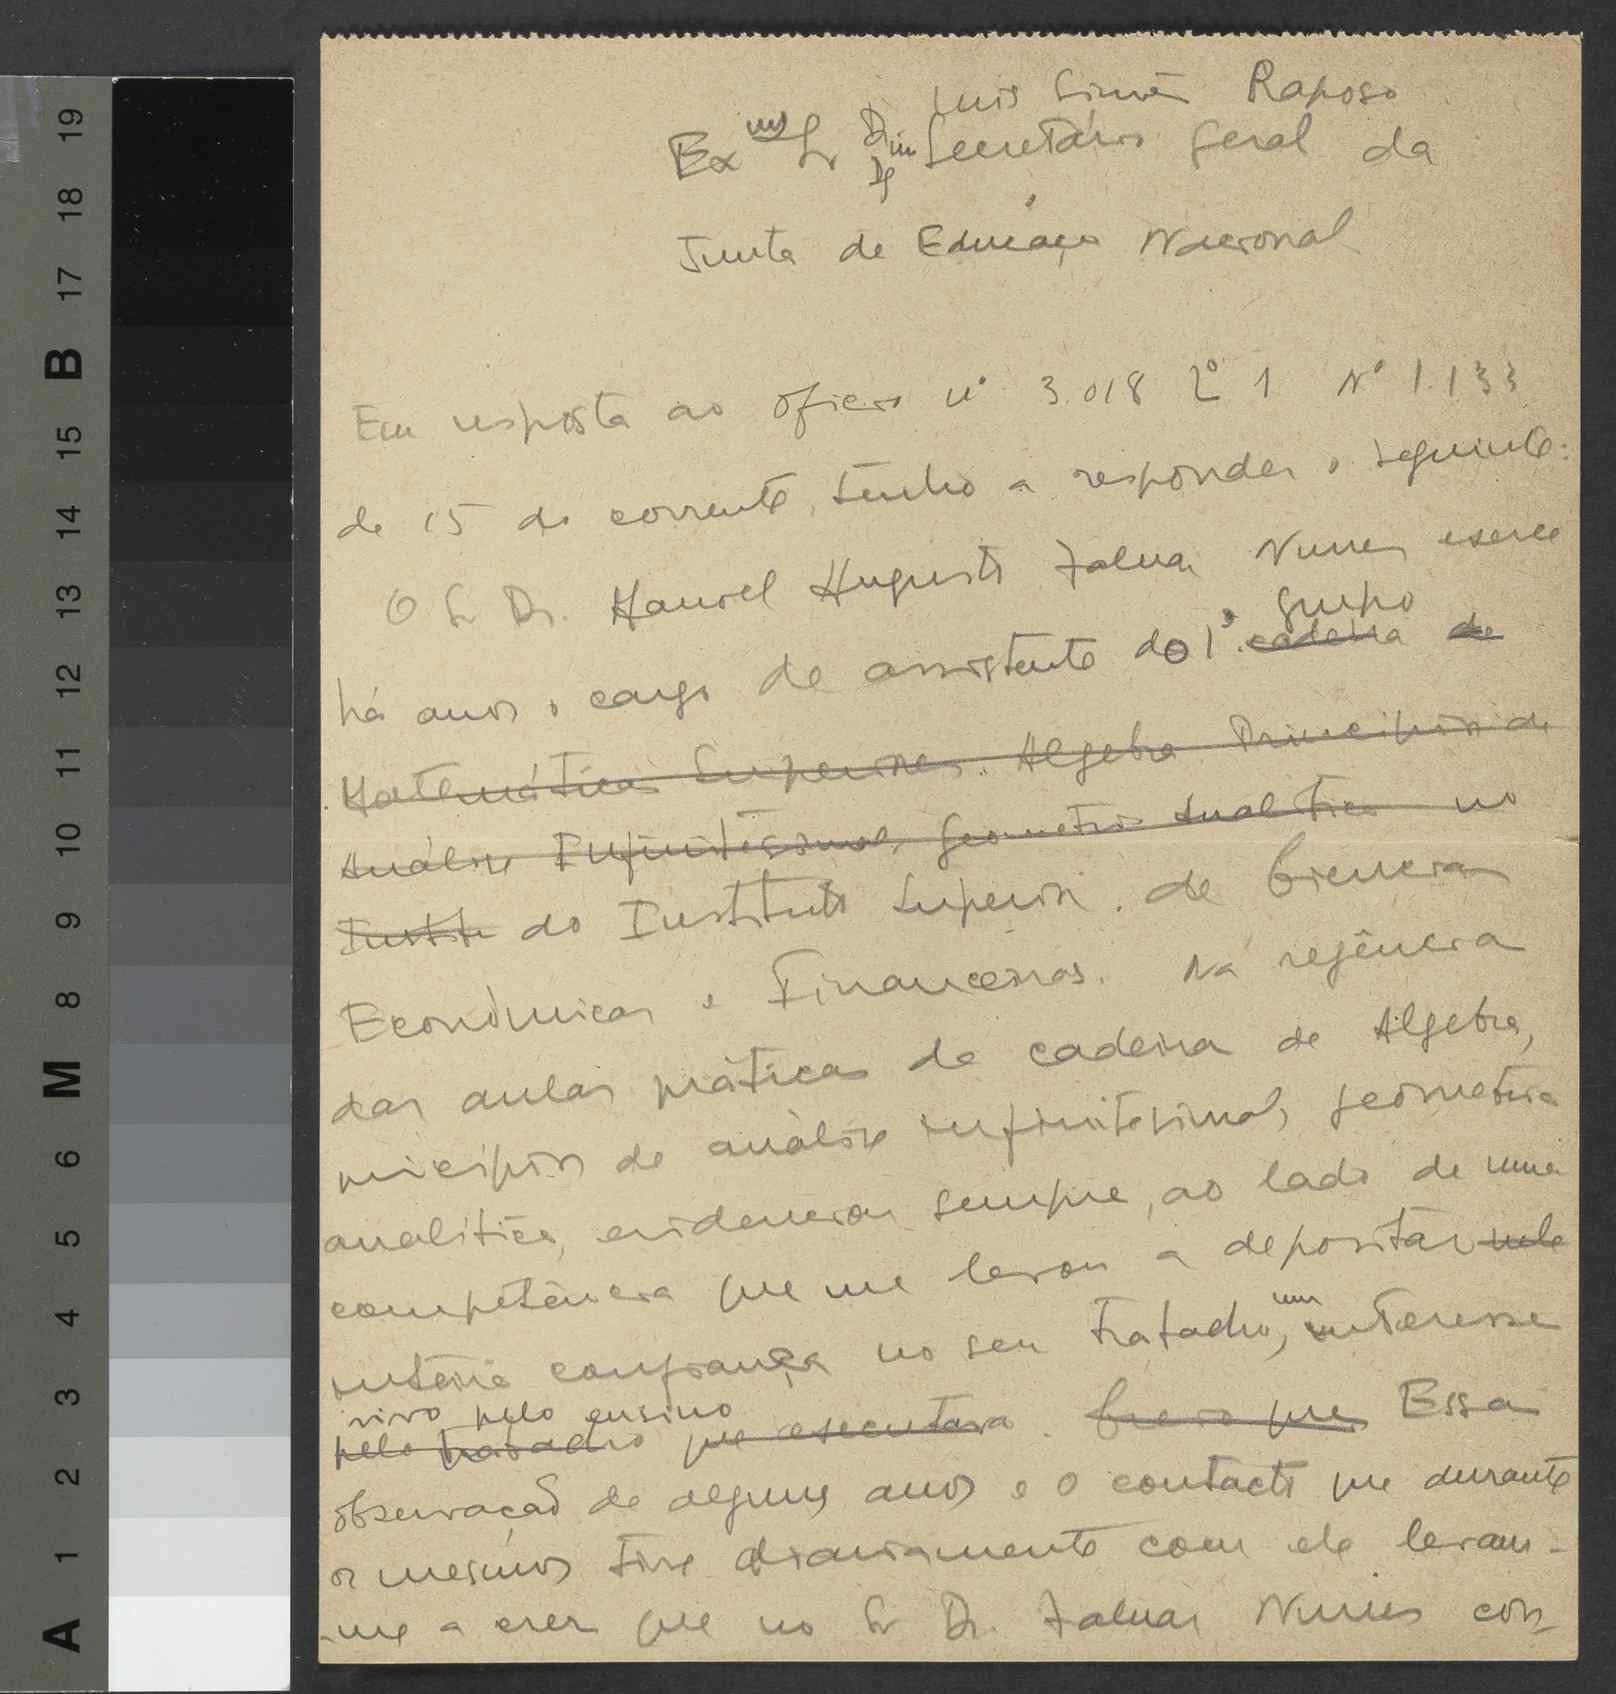 Luis Simões Raposo
Exmo Sr Dr Secretário Geral da
Junta de Educação Nacional
Em resposta ao oficio nº 3.018 Lº 1 Nº 1.133
de 15 do corrente, tenho a responder o seguinte:
O Sr Dr. Manuel Augusto Zaluar Nunes exerce
há anos o cargo de assistente do 1º cadeira de
grupo
Matemáticas Superiores. Algebra Principios de
Análise Infinitésimal, Geometria Analitica no
Instit do Instituto Superior de Ciencias
Económicas e Financeiras. Na regência
das aulas práticas da cadeira de Algebra,
principios de análise infinitesimal, geometria
analitica, evidenciou sempre, ao lado de uma
competência que me levou a depositar nele
inteira confiança no seu trabalho, um interesse
vivo pelo ensino
pelo trabalho que executava. Creio que Essa
observação de alguns anos e o contacto que durante
os mesmos tive diariamente com ele levam-
-me a crer que no Sr Dr. Zaluar Nunes con-
A 1 2 3 4 5 6 M 8 9 10 11 12 13 14 15 B 17 18 19